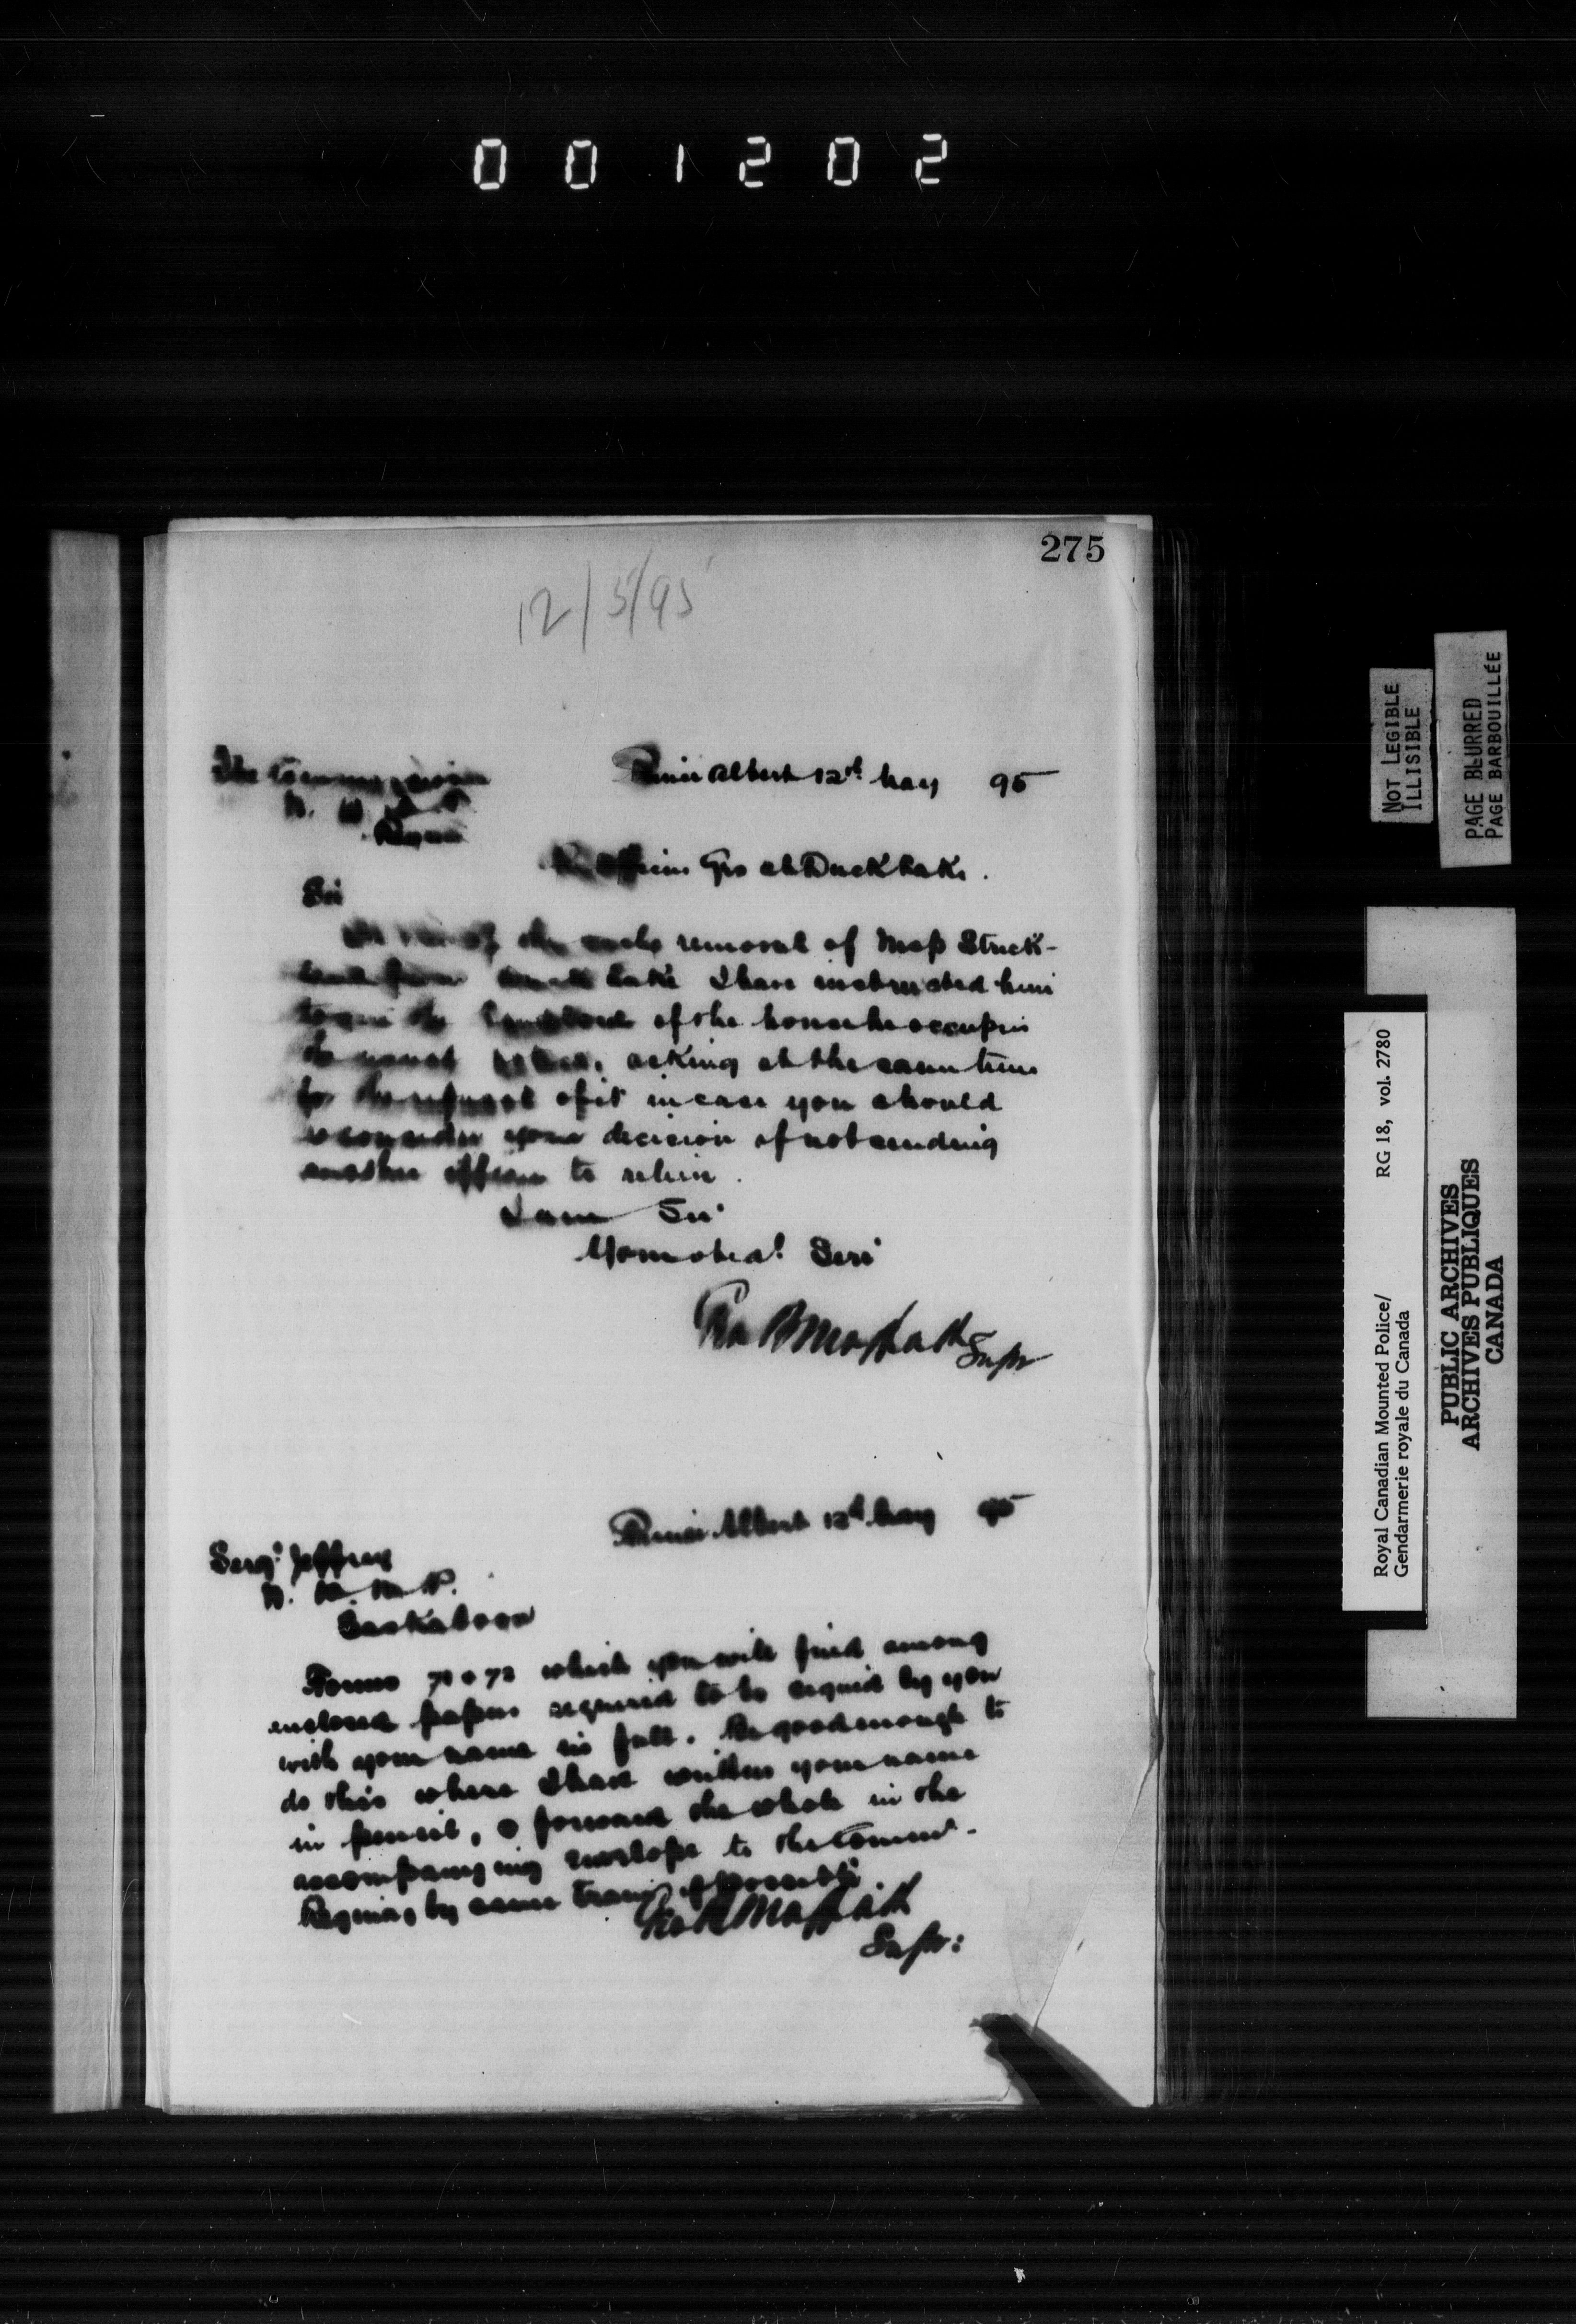 001202
275
12/5/95
The Commissioner
N. W. M. P.
Regina
Prince Albert 12th May 95
Officers Qrs at Duck Lake.
Sir
In view of the early removal of Insp Strick-
land from Duck Lake I have instructed him
to give the landlord of the house he occupies
the usual notice, asking at the same time
for the refusal of it in case you should
reconsider your decision of not sending
another officer to relieve.
I am Sir
Your obed! Serv
Geo B Moffatt Supt
Prince Albert 12th May 95
Sergt Jeffrey
N. W. M. P.
Saskatoon
Forms 70 & 72 which you will find among
enclosed papers required to be signed by you
with your name in full. Be good enough to
do this where I have written your name
in pencil, & forward the whole in the
accompanying envelope to the Commr.
Regina, by same train if possible
Geo B Moffatt
Supt:
NOT LEGIBLE
ILLISIBLE
PAGE BLURRED
PAGE BARBOUILLÉE
Royal Canadian Mounted Police/ RG 18, vol. 2780
Gendarmerie royale du Canada
PUBLIC ARCHIVES
ARCHIVES PUBLIQUES
CANADA